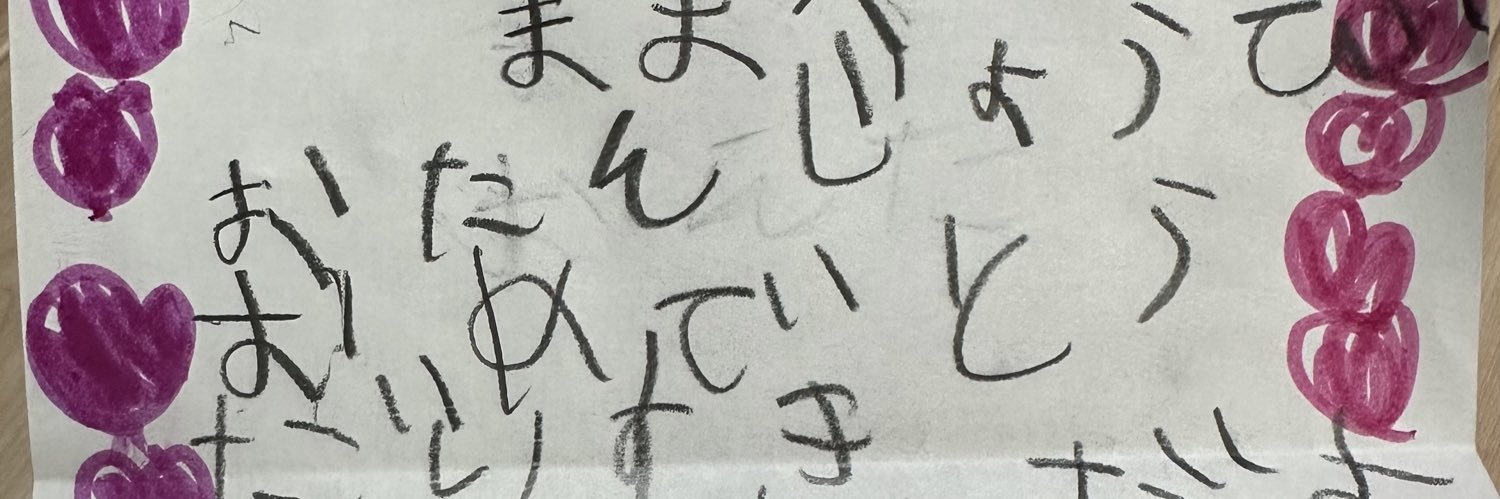 ままへ
おたんじょうび
おめでとう
だいすきだよ